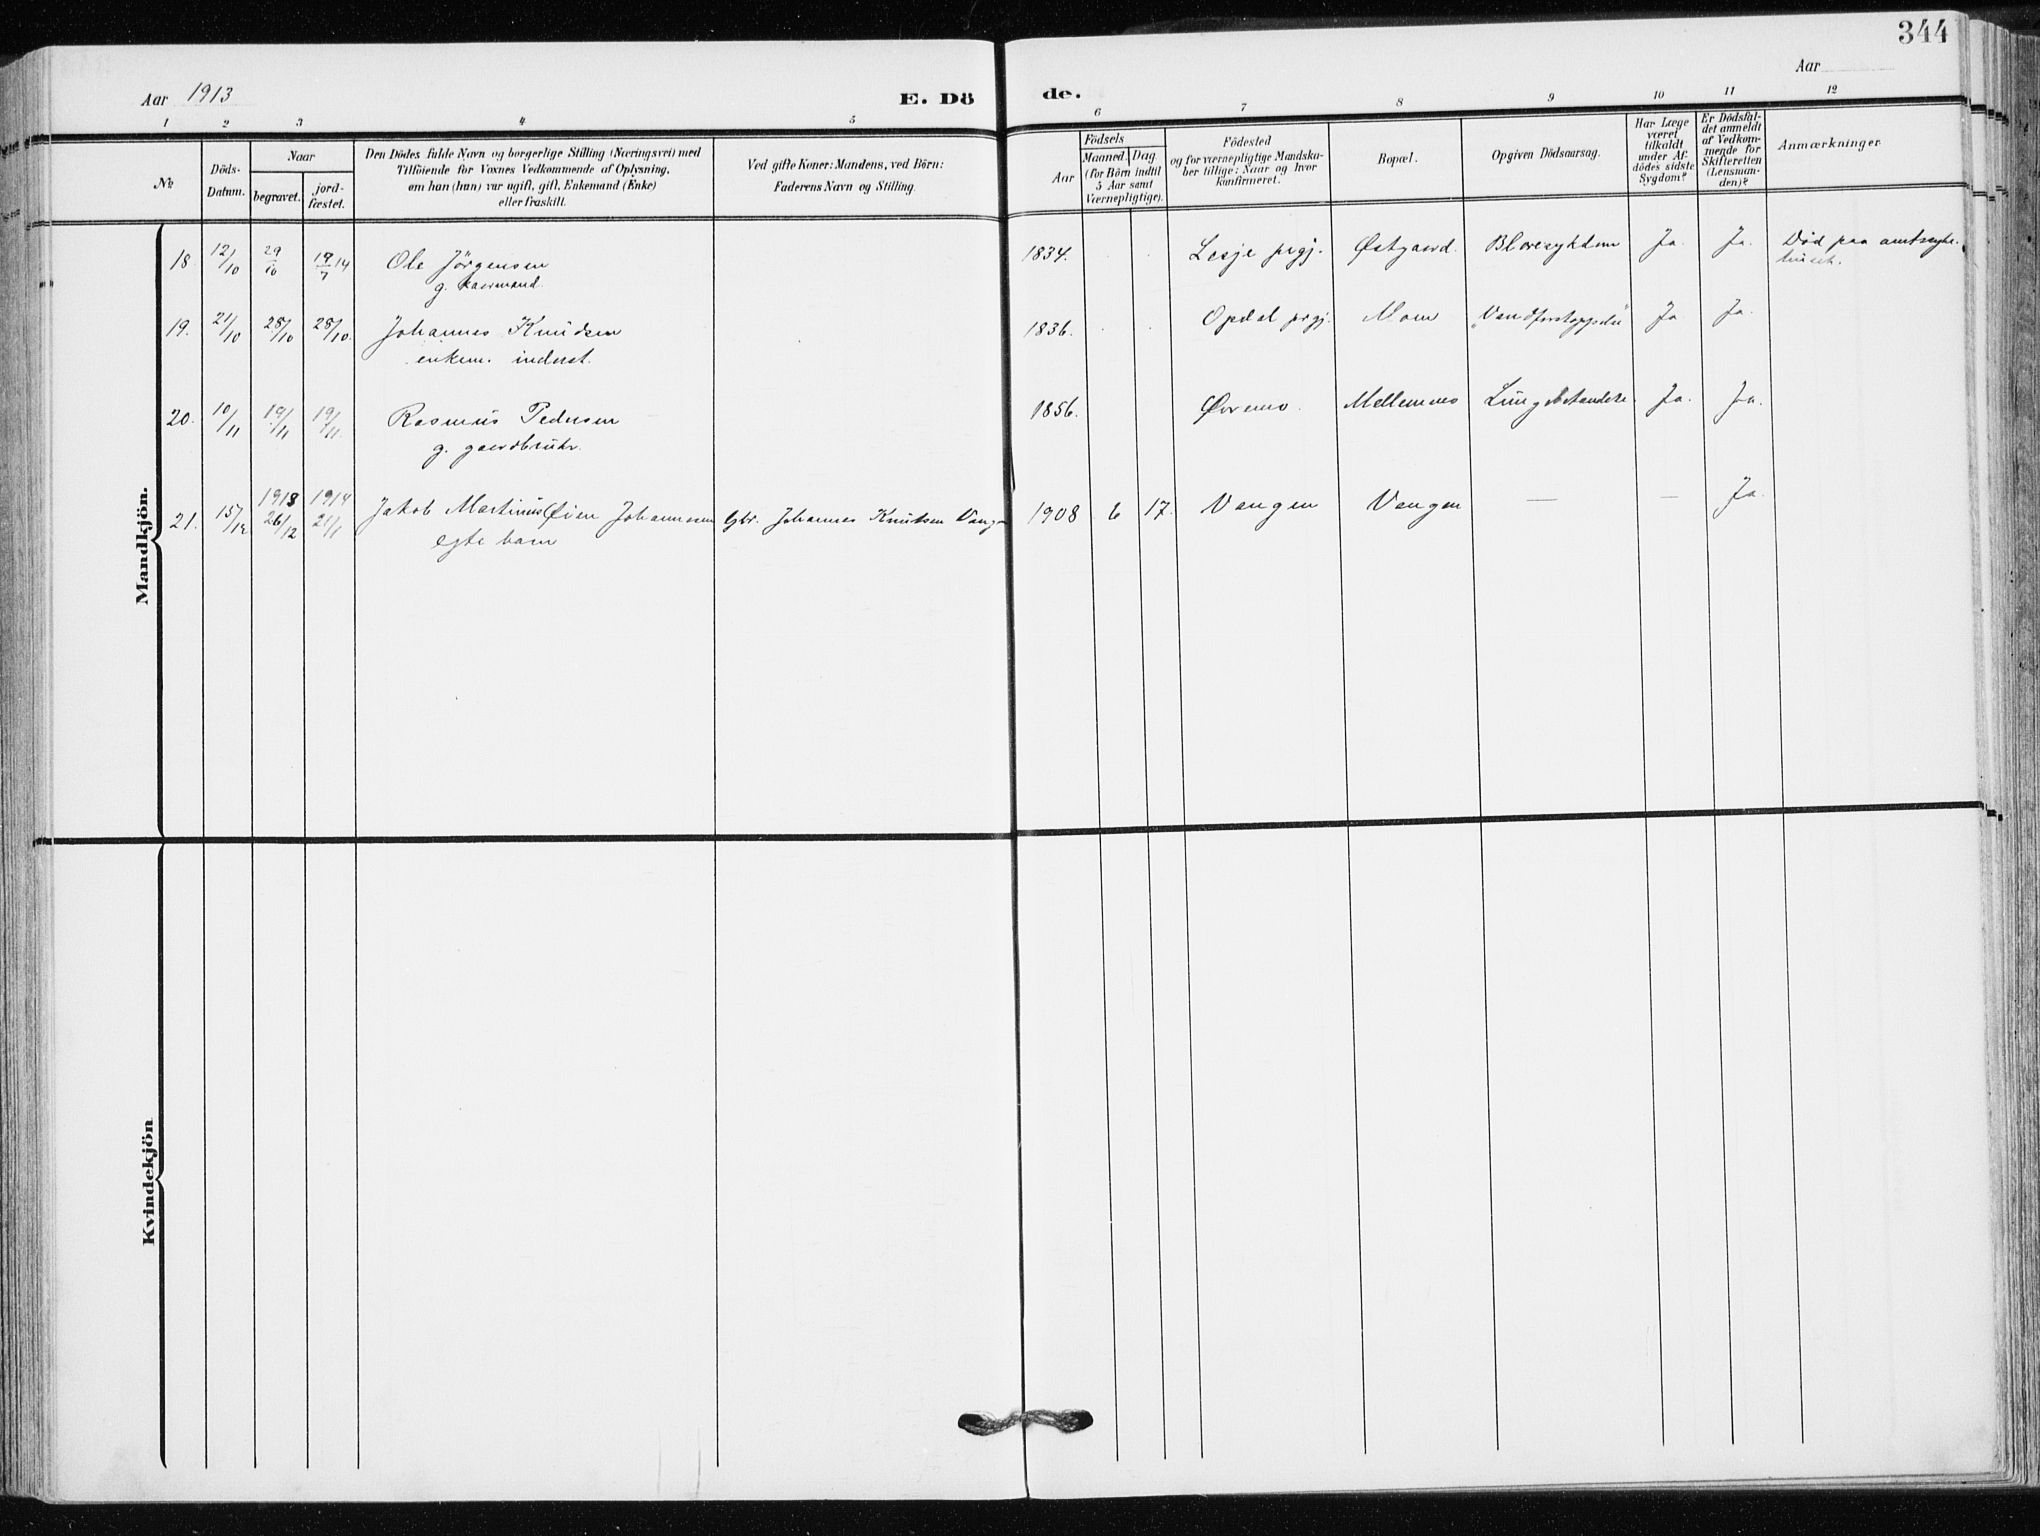 344
Aar 1913
E. Dö
de.
Aar
1 2 3 4 5 6 7 8 9 10 11 12
No
Döds-
Datum.
Naar
begravet.
jord-
fæstet.
Den Dödes fulde Navn og borgerlige Stilling (Næringsvei) med
Tilföiende for Voxnes Vedkommende af Oplysning,
om han (hun) var ugift, gift, Enkemand (Enke)
eller fraskilt.
Ved gifte Koner: Mandens, ved Börn:
Faderens Navn og Stilling.
Födsels
Aar
Maaned. Dag.
(for Börn indtil
5 Aar samt
Værnepligtige).
Födested
og for værnepligtige Mandska-
ber tillige: Naar og hvor
konfirmeret.
Bopæl.
Opgiven Dödsaarsag.
Har Læge
været
tilkaldt
under Af-
dödes sidste
Sygdom?
Er Dödsfal-
det anmeldt
af Vedkom-
mende for
Skifteretten
(Lensman-
den)?
Anmærkninger
Mandkjön.
18. 12/10 29/10 19/7 14 Ole Jörgensen 1834. Lesje prgj. Østgaard. Blæresykdom Ja. Ja. Död paa amtssyke-
g. kaarmand. huset.
19. 21/10 28/10 28/10. Johannes Knudsen 1836. Opdal prgj. Moen "Vandforstoppelse" Ja Ja.
enkem. inderst.
20. 10/11 19/11 19/11. Rasmus Pedersen 1856. Øvremo. Mellemnes Lungebetændelse Ja. Ja.
g. gaardbruker.
1913 1914
21. 15/12 26/12 21/1 Jakob Martinus Øien Johannesen Gbr. Johannes Knutsen Vangen 1908 6 17. Vangen Vangen — — Ja.
egte barn
Kvindekjön